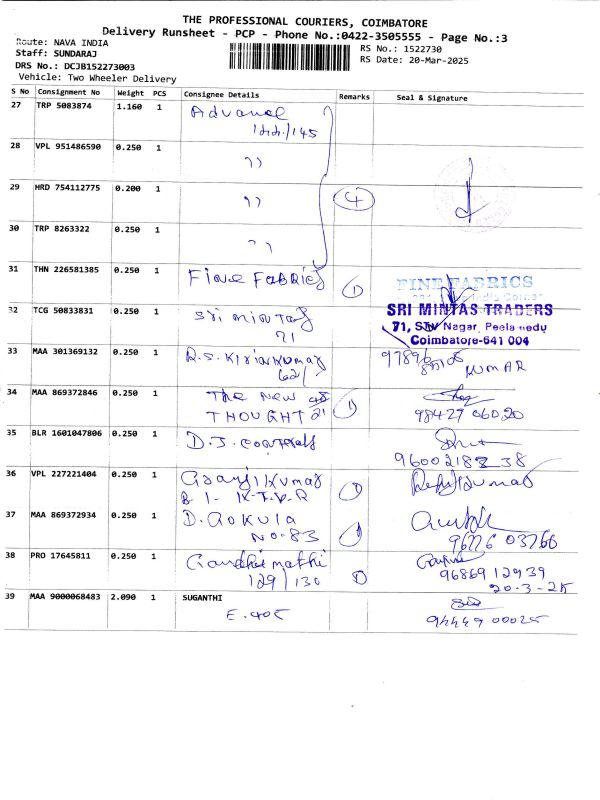 THE PROFESSIONAL COURIERS, COIMBATORE
Delivery Runsheet - PCP - Phone No.:0422-3505555 - Page No.:3
Route: NAVA INDIA
RS No.: 1522730
Staff: SUNDARAJ
RS Date: 20-Mar-2025
DRS No.: DCJB152273003
Vehicle: Two Wheeler Delivery
S No Consignment No Weight PCS Consignee Details Remarks Seal & Signature
27 TRP 5083874 1.160 1 Advance
145
28 VPL 951486590 0.250 1 ,,
29 HRD 754112775 0.200 1 ,, 4
30 TRP 8263322 0.250 1 ,,
31 THN 226581385 0.250 1 Fine Fabrics 1 FINE FABRICS
32 TCG 50833831 0.250 1 Sri Mintas SRI MINTAS TRADERS
71 71, SIV Nagar, Peelamedu
Coimbatore-641 004
33 MAA 301369132 0.250 1 R.S. Kirian Kumar
62/ KUMAR
34 MAA 869372846 0.250 1 The New
THOUGHT 21 1 98427 06020
35 BLR 1601047806 0.250 1 D.J.
96002182 38
36 VPL 227221404 0.250 1 1
B 1- K.T.V.R
37 MAA 869372934 0.250 1 D. Gokula
NO-83 1 96776 03766
38 PRO 17645811 0.250 1 Gandhimathi
129/130 1 96869 12939
20-3-25
39 MAA 9000068483 2.090 1 SUGANTHI
E. 405 94449 00025